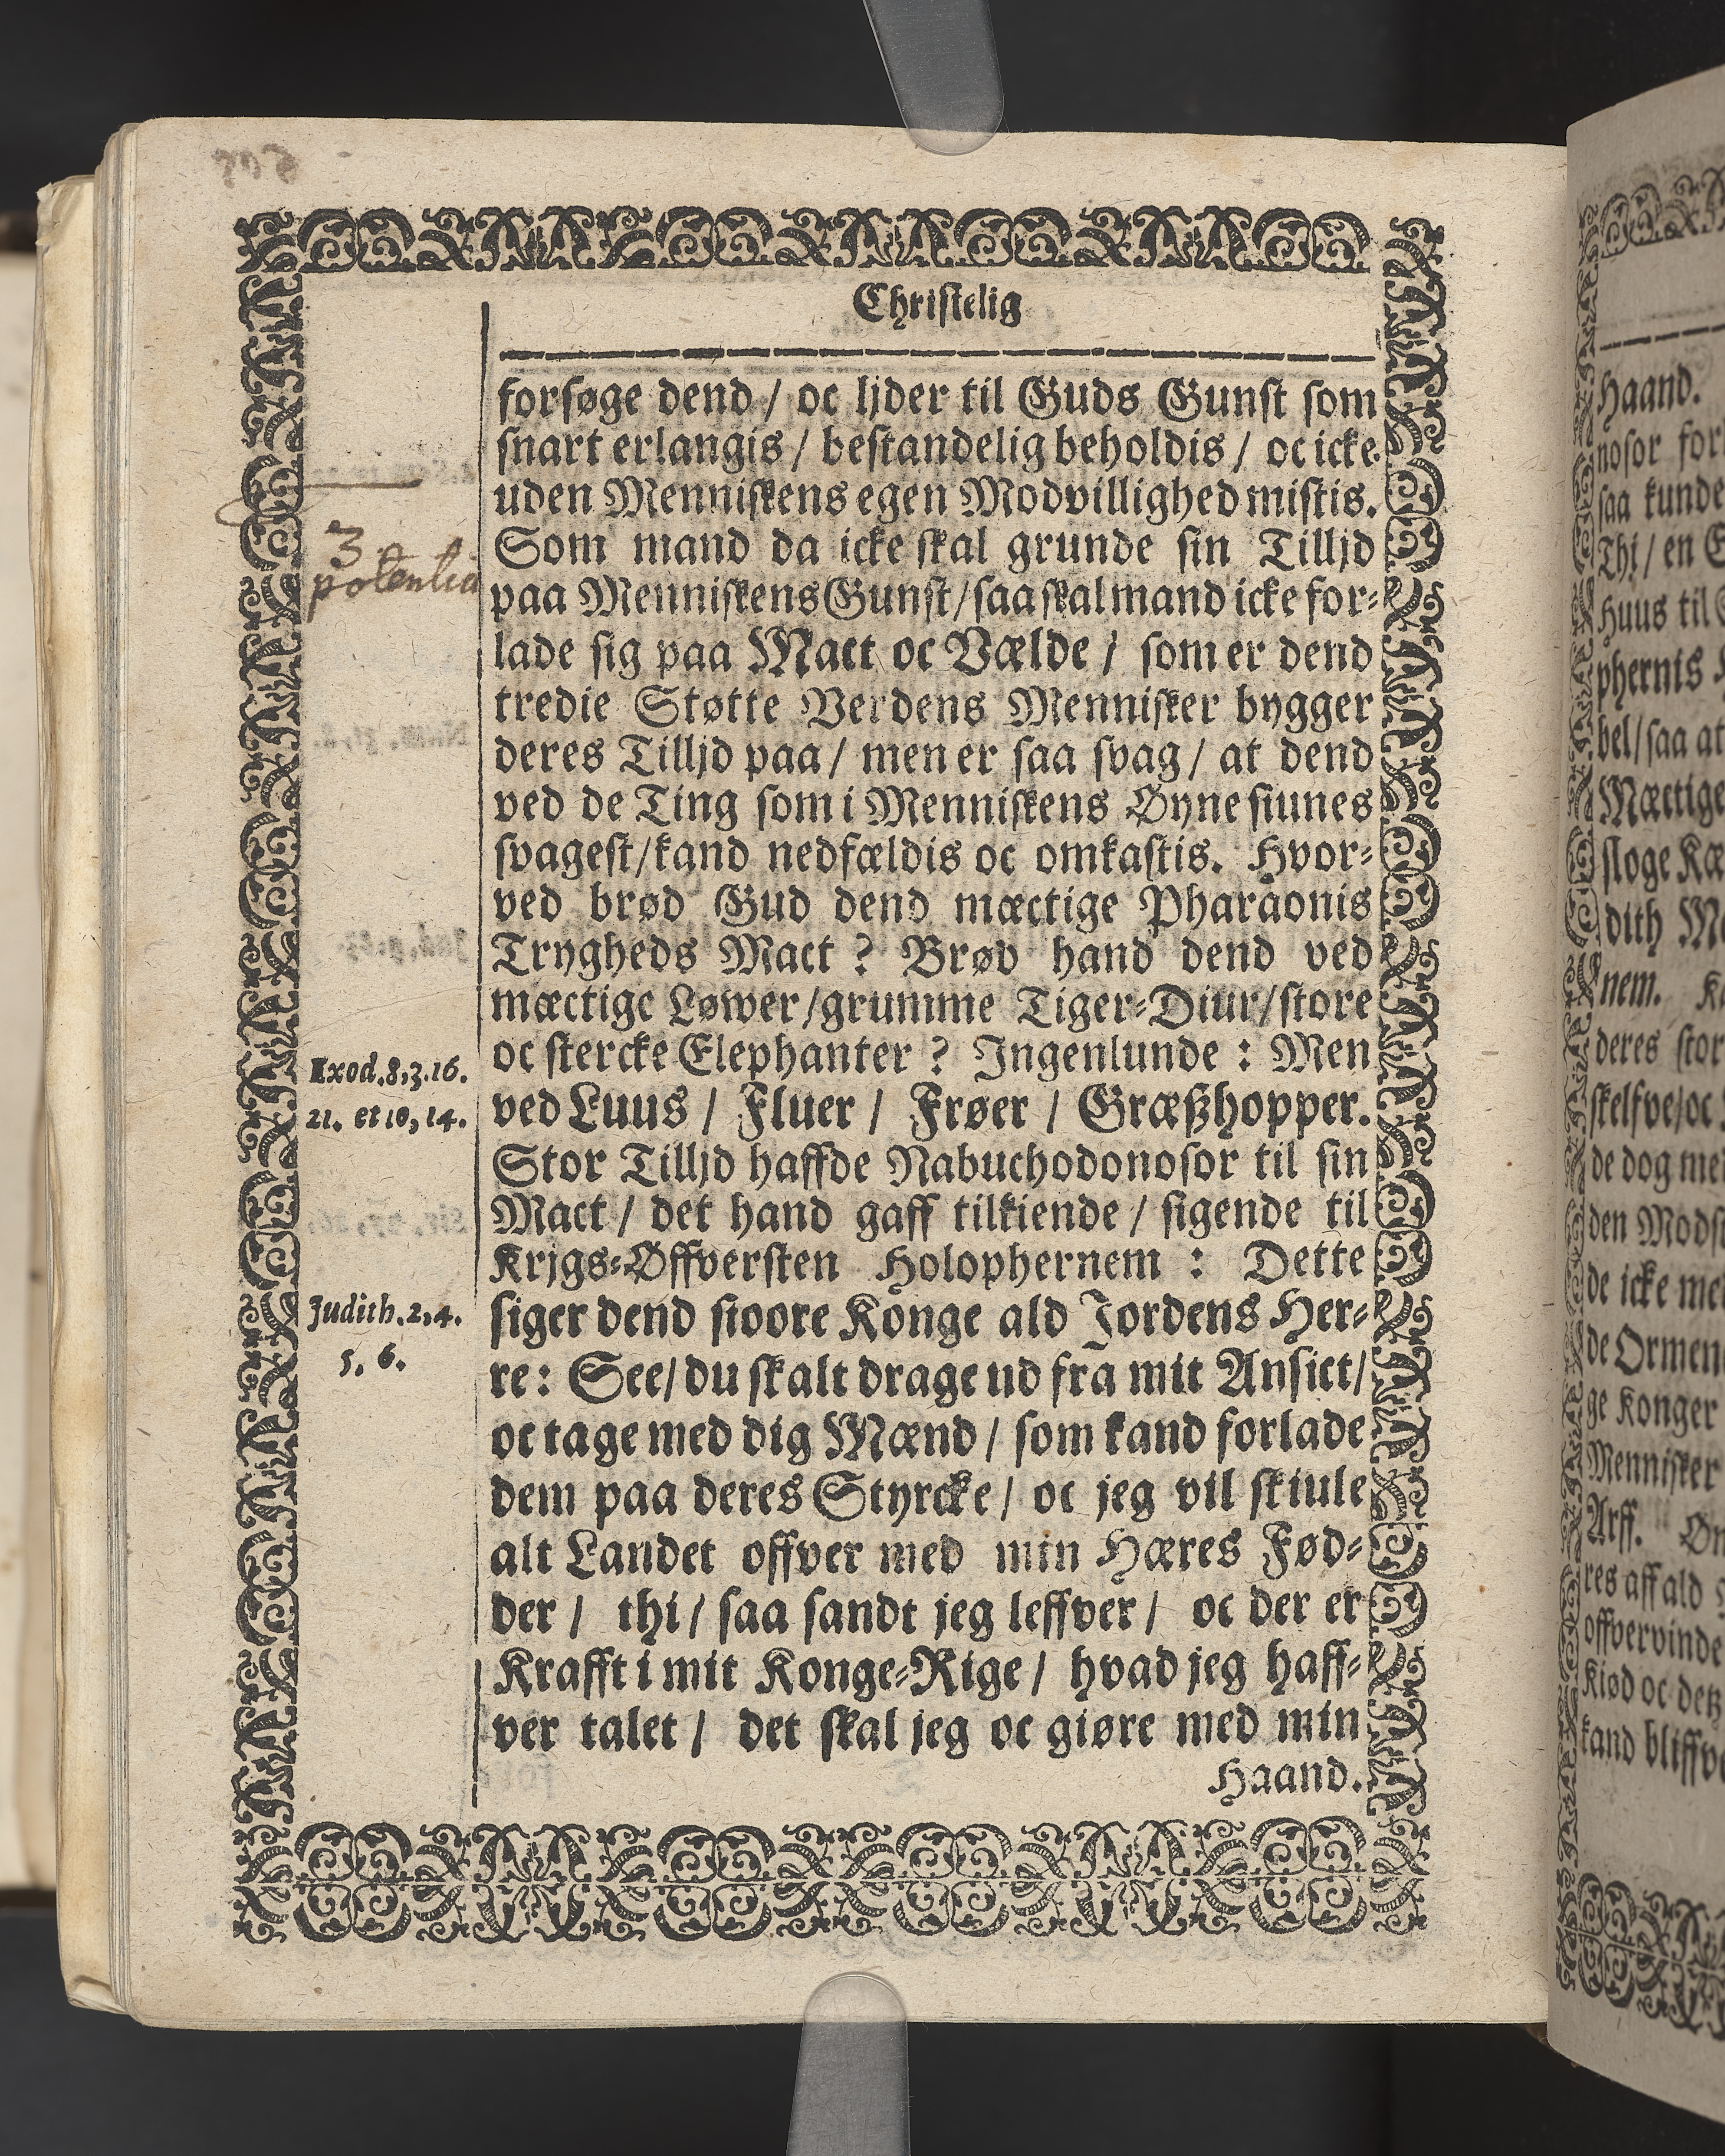 Christelig
forsøge dend / oc ljder til Guds Gunst som
snart erlangis / bestandelig beholdis / oc icke
uden Menniskens egen Modvillighed mistis.
Som mand da icke skal grunde sin Tilljd
paa Menniskens Gunst / saa skal mand icke for-
lade sig paa Mact oc Vælde / som er dend
tredie Støtte Verdens Mennisker bygger
deres Tilljd paa / men er saa svag / at dend
ved de Ting som i Menniskens Øyne siunes
svagest / kand nedfældis oc omkastis. Hvor-
ved brød Gud dend mæctige Pharaonis
Trygheds Mact ? Brød hand dend ved
mæctige Løwer / grumme Tiger-Diur / store
oc stercke Elephanter ? Ingenlunde : Men
ved Luus / Fluer / Frøer / Græßhopper.
Stor Tilljd haffde Nabuchodonosor til sin
Mact / det hand gaff tilkiende / sigende til
Krjgs-Øffversten Holophernem : Dette
siger dend stoore Konge ald Jordens Her-
re : See / du skalt drage ud fra mit Ansict /
oc tage med dig Mænd / som kand forlade
dem paa deres Styrcke / oc jeg vil skiule
alt Landet offver med min Hæres Fød-
der / thi / saa sandt jeg leffver / oc der er
Krafft i mit Konge-Rige / hvad jeg haff-
ver talet / det skal jeg oc giøre med min
Haand.
3
potentia
Exod. 8, 3. 16.
21. et 10, 14.
Judith. 2, 4.
5, 6.
Haand.
nosor for
saa kunde
Thi / en
Huus til
phernis
bel / saa at
Mæctige
sloge Kæ
dith
nem.
deres stor
skelfve / oc
de dog med
den Modst
de icke me
de Ormen
ge Konger
Mennisker
Arff.
res aff ald
offvervinde
Kiød oc detz
kand bliffve